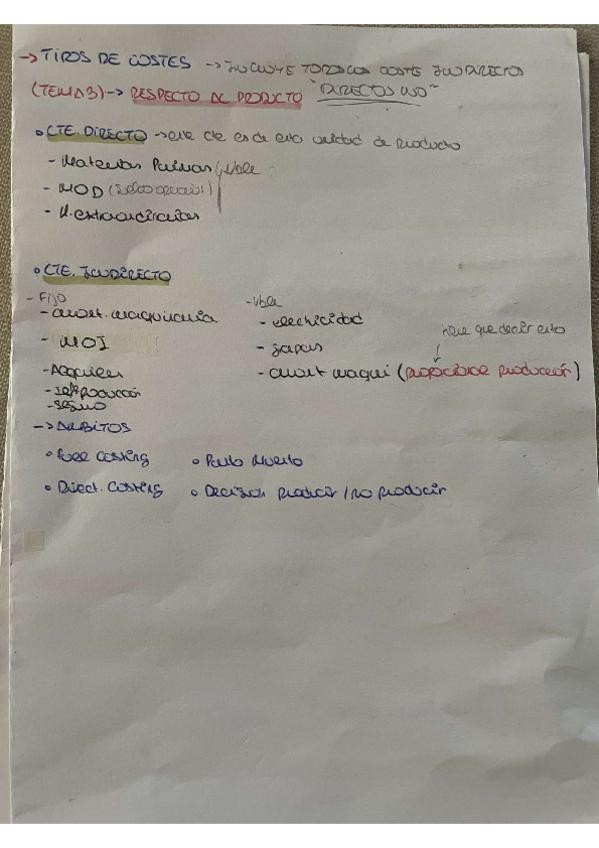 → TIPOS DE COSTES → INCLUYE TODOS LOS COSTE INDIRECTOS
(TEMA 3) → RESPECTO AL PRODUCTO "DIRECTOS NO"
• CTE. DIRECTO → cte de unidad de producto
- Materias Primas Vble
- MOD
- H. extraordinarias
• CTE. INDIRECTO
- Fijo
- Vble
- amort. maquinaria
- electricidad
- MOI
- tiene que decir esto
- Alquiler
- amort maqui (proporcional producción)
- Jefe producción
- seguro
→ ÁMBITOS
• Full Costing
• Punto Muerto
• Direct. Costing
• Decisión producir / no producir